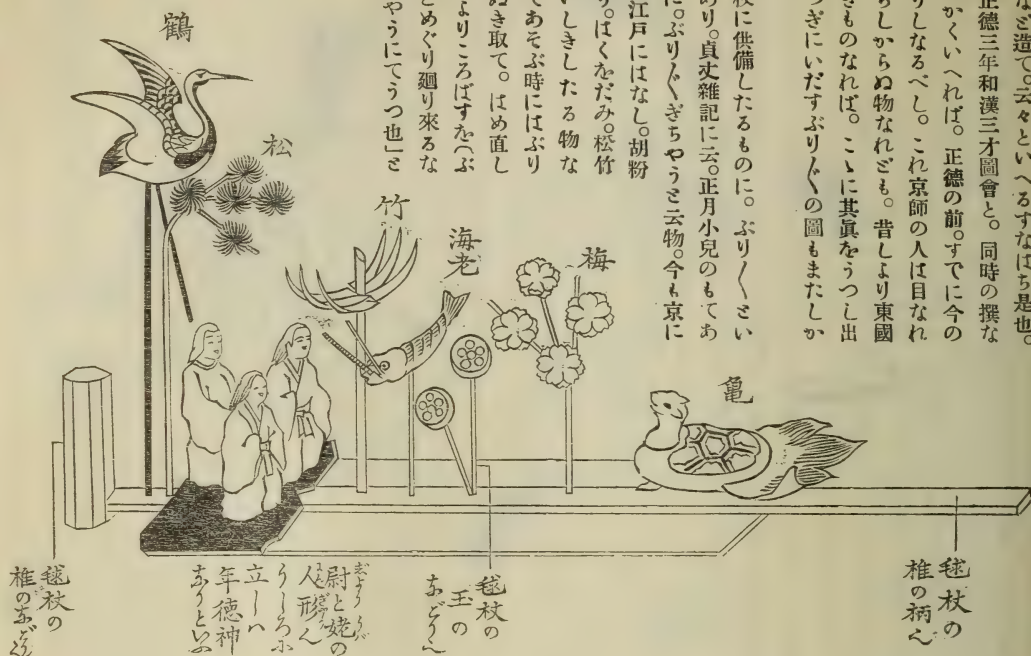 など造て。云々といへるすなはち是也。
正徳三年和漢三才圖會と。同時の撰な
かくいへれば。正徳の前。すでに今の
りしなるべし。これ京師の人は目なれ
らしからぬ物なれども。昔しより東國
きものなれば。こゝに其眞をうつし出
つぎにいだすぶり〱の圖もまたしか
杖に供備したるものに。ぶり〱とい
あり。貞丈雜記に云。正月小兒のもてあ
に。ぶり〱ぎちやうと云物。今も京に
江戸にはなし。胡粉
り。はくをだみ。松竹
いしきしたる物な
てあそぶ時にはぶり
ぬき取て。はめ直し
よりころばすを(ぶ
とめぐり廻り來るな
やうにてうつ也」と
鶴
松
竹
海老
梅
亀
毬杖の
椎の柄也
毬杖の
玉の
なごり也
尉と姥の
人形也
うしろに
立しハ
年徳神
なりといふ
毬杖の
椎のなごり也